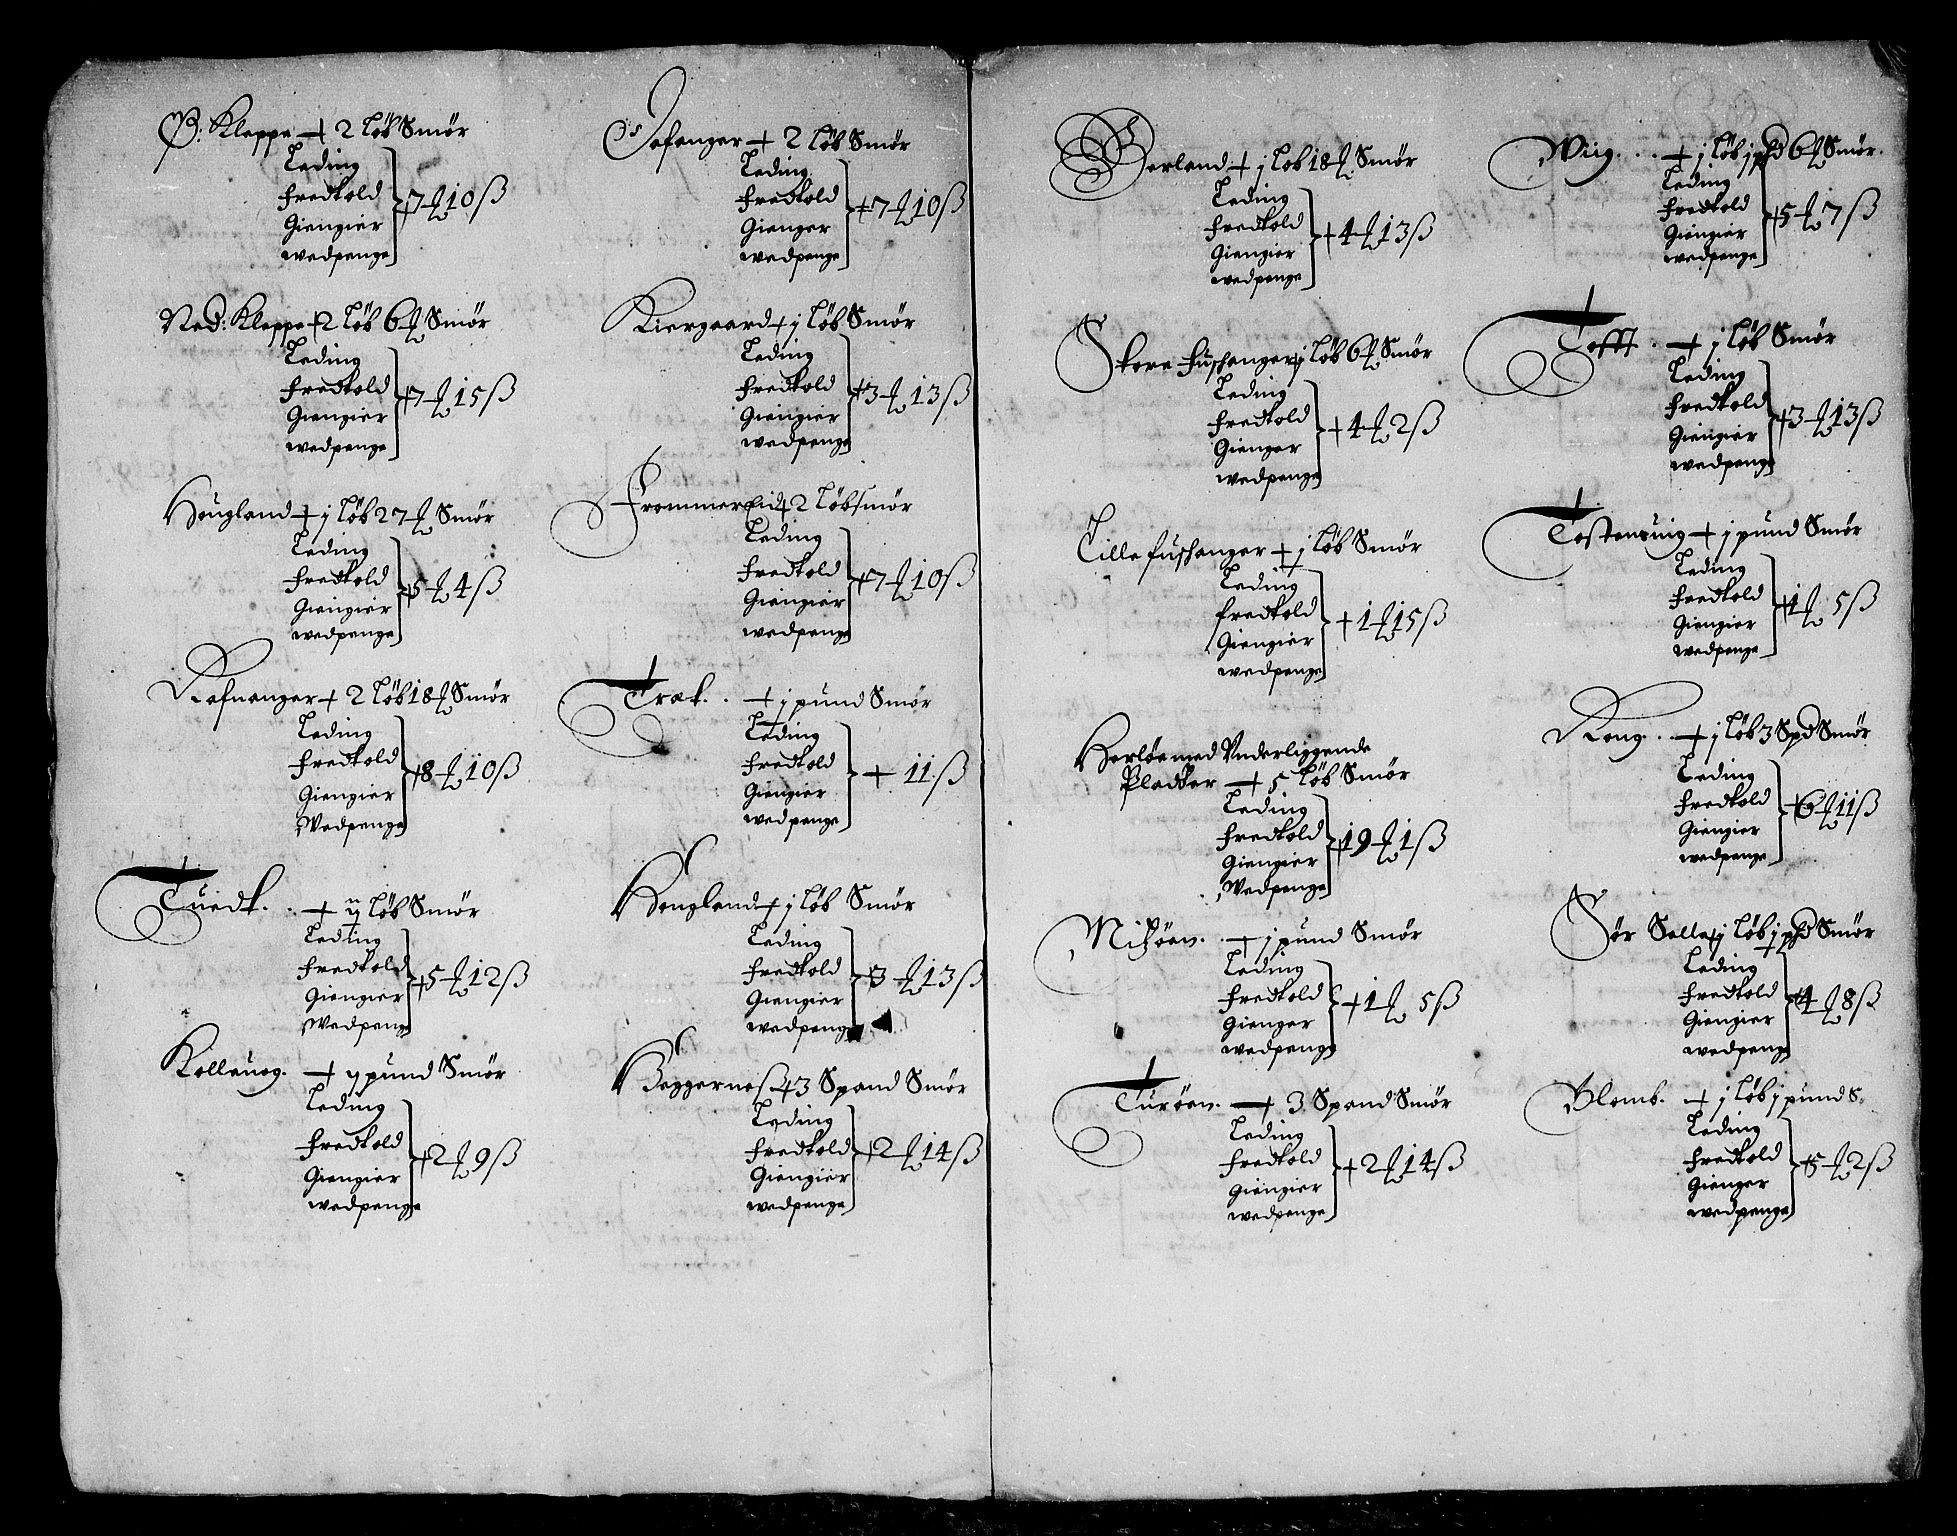 Ø: Kleppe + 2 løb Smør
Leding
Fredtold
Giengier
wedpenge
+7 ℔ 10 ß
Ned: Kleppe + 2 løb 6 ℔ Smør
Leding
Fredtold
Giengier
wedpenge
+7 ℔ 15 ß
Hougland + j løb 27 ℔ Smør
Leding
Fredtold
Giengier
wedpenge
+5 ℔ 4 ß
Rafnanger + 2 løb 18 ℔ Smør
Leding
Fredtold
Giengier
Wedpenge
+8 ℔ 10 ß
Tuedt. . + løb Smør
Leding
Fredtold
Giengier
Wedpenge
+5 ℔ 12 ß
Kolleuog. + ij pund Smør
Leding
Fredtold
Giengier
wedpenge
+2 ℔ 9 ß
Jofanger + 2 løb Smør
Leding
Fredtold
Gienger
wedpenge
+7 ℔ 10 ß
Kiergaard + j løb Smør
Leding
Fredtold
Giengier
wedpenge
+3 ℔ 13 ß
Frommereid + 2 løb smør
Leding
Fredtold
Giengier
wedpenge
+7 ℔ 10 ß
Træt. . + j pund Smør
Leding
Fredtold
Giengier
wedpenge
+ 11 ß
Hengland + j løb Smør
Leding
Fredtold
Giengier
wedpenge
+3 ℔ 13 ß
Heggerneß + 3 Spand Smør
Leding
Fredtold
Giengier
wedpenge
+2 ℔ 14 ß
Berland + j løb 18 ℔ Smør
Leding
Fredtold
Giengier
wedpenge
+4 ℔ 13 ß
Store fushanger + j løb 6 ℔ Smør
Leding
Fredtold
Gienger
wedpenge
+4 ℔ 2 ß
Lille fushanger + j løb Smør
Leding
fredtold
Giengier
wedpenge
+1 ℔ 15 ß
Herløe med Vnderliggende
Pladtzer + 5 løb Smør
Leding
Fredtold
Giengier
Wedpenge
+19 ℔ 1 ß
Milzøen. . + j pund Smør
Leding
Fredtold
Gienger
wedpenge
+1 ℔ 5 ß
Turøen. + 3 Spand Smør
Leding
Fredtold
Giengier
wedpenge
+2 ℔ 14 ß
Wiig. . . + j løb j pd 6 ℔ Smør.
Leding
Fredtold
Giengier
wedpenge
+5 ℔ 7 ß
Tofft. + j løb Smør
Leding
Fredtold
Giengier
wedpenge
+3 ℔ 13 ß
Tostensuig + j pund Smør
Leding
Fredtold
Giengier
wedpenge
+1 ℔ 5 ß
Rong. . + j løb 3 Spd Smør
Leding
Fredtold
Giengier
wedpenge
+6 ℔ 11 ß
Sør Selle + j løb j pd Smør
Leding
Fredtold
Giengier
wedpenge
+4 ℔ 8 ß
Blomb. + j løb j pund S.
Leding
Fredtold
Gienger
wedpenge
+5 ℔ 2 ß